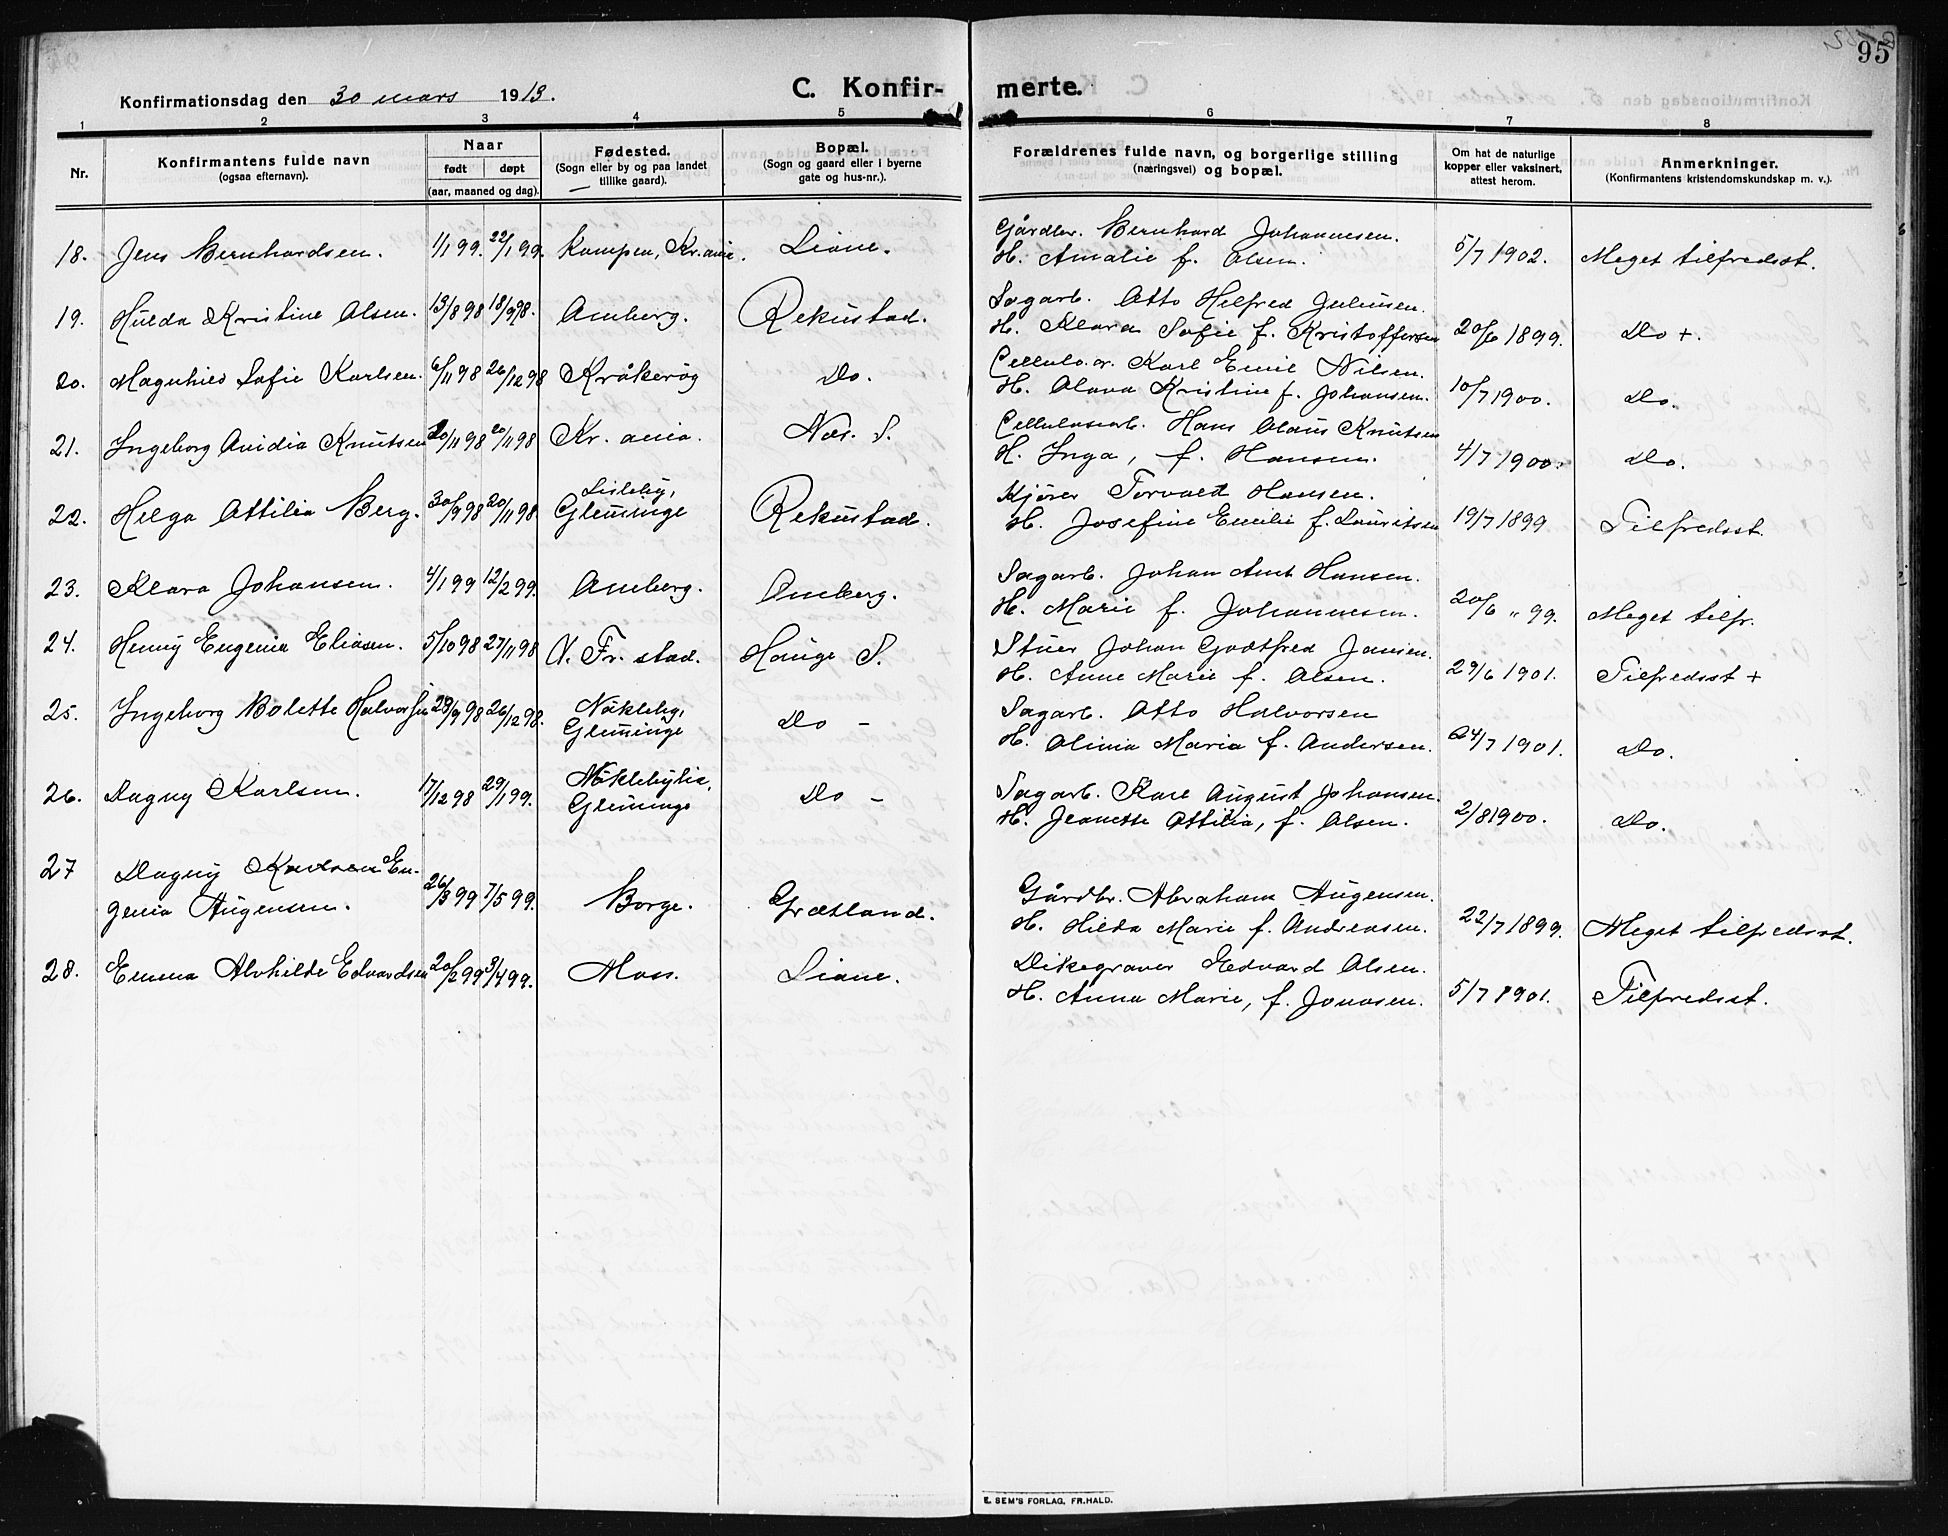 95
Konfirmationsdag den 30 mars 1913.
C. Konfir-
merte.
1 2 3 4 5 6 7 8
Nr.
Konfirmantens fulde navn
(ogsaa efternavn).
Naar
født døpt
(aar, maaned og dag).
Fødested.
(Sogn eller by og paa landet
tillike gaard).
Bopæl.
(Sogn og gaard eller i byerne
gate og hus-nr.).
Forældrenes fulde navn, og borgerlige stilling
(næringsvei) og bopæl.
Om hat de naturlige
kopper eller vaksinert,
attest herom.
Anmerkninger.
(Konfirmantens kristendomskundskap m. v.).
Gårdbr. Bernhard Johannesen.
18. Jens Bernhardsen. 1/1 99. 22/1 99. Kampen, Kr.ania. Liane. H. Amalie f. Olsen. 5/7 1902. Meget tilfredsst.
Sagarb. Otto Hilfred Juliusen.
19. Hulda Kristine Olsen. 13/8 98 18/9 98. Amberg. Rekustad. H. Klara Sofie f. Kristoffersen 20/6 1899. Do +.
Cellulo.ar. Karl Emil Nilsen.
20. Magnhild Sofie Karlsen. 6/11 98 26/12 98 Kråkerøg Do. H. Olava Kristine f. Johansen. 10/7 1900. Do.
Cellulosearb. Hans Olaus Knutsen
21. Ingeborg Avidia Knutsen 20/11 98 Kr. ania. Næs. S. H. Inga, f. Hansen. 4/7 1900. Do.
Lisleby, Kjører Torvald Hansen.
22. Helga Ottilia Berg. 30/9 98 20/11 98 Glemminge Rekustad. H. Josefine Emilie f. Lauritsen 19/7 1899 Tilfredsst.
Sagarb. Johan Arnt Hansen.
23. Klara Johansen. 4/1 99 12/2 99. Amberg. Omberg. H. Marie f. Johannesen. 20/6 " 99. Meget tilfr.
Stuer Johan Godtfred Jansen.
24. Henny Eugenia Eliasen. 5/10 98 27/11 98 V. Fr. stad. Hauge S. H. Anne Marie f. Olsen. 29/6 1901. Tilfredsst +
Nökleby, Sagarb. Otto Halvorsen
25. Ingeborg Bolette Halvorsen 28/9 98 26/12 98. Glemminge Do - H. Olivia Maria f. Andersen. 24/7 1901. Do.
Nöklebylia, Sagarb. Karl August Johansen.
26. Dagny Karlsen. 17/12 98 29/1 99. Glemminge Do - H. Jeanette Ottilia, f. Olsen. 2/8 1900. Do.
27 Dagny Eu-
genia Augensen. 26/3 99 7/5 99. Borge. Grætland. Gårdbr. Abraham Augensen.
H. Hilda Marie f. Andreasen. 22/7 1899. Meget tilfredsst.
Dikegraver Edvard Olsen.
28. Emma Alvhilde Edvardsen 20/2 99 3/4 99. Moss. Liane. H. Anna Marie, f. Jonasen. 5/7 1901. Tilfredsst.
E. SEM'S FORLAG, FR.HALD.